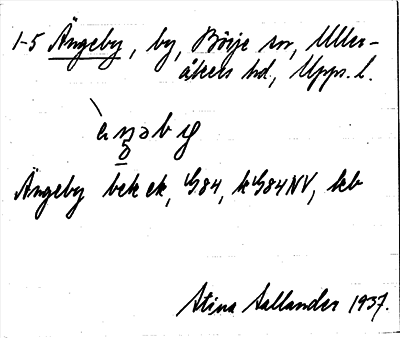 1-5 Ängeby, by, Börje sn, Uller-
åkers hd, Upps. l.
Ängeby bek ek, G84, kG84NV, kb
Stina Sallander 1937.